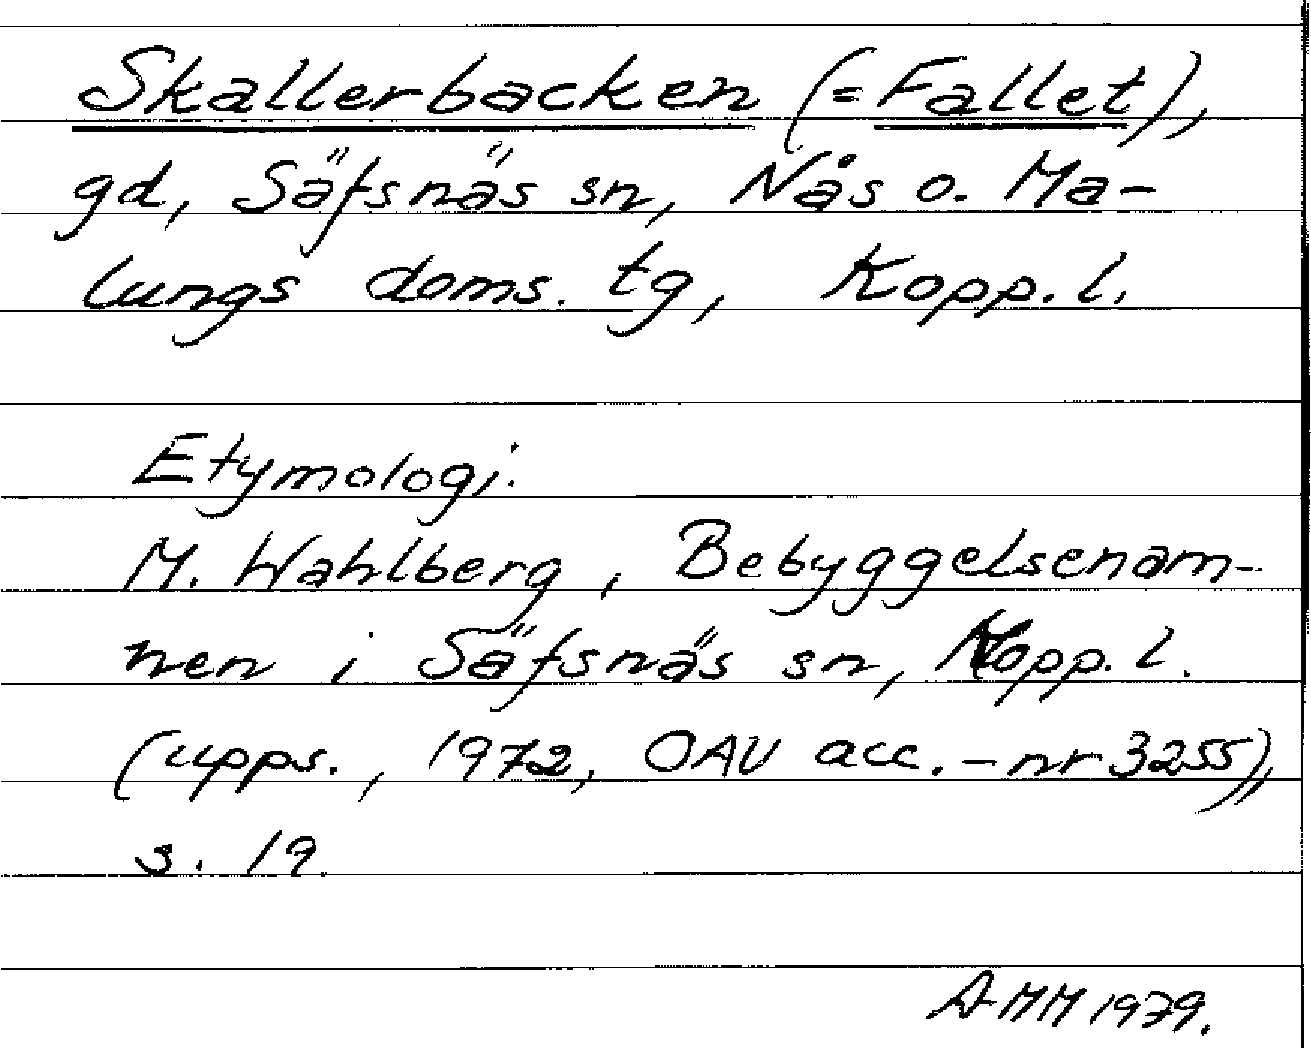 Skallerbacken (= Fallet),
gd, Säfsnäs sn, Nås o. Ma-
lungs doms. tg, Kopp. l.
Etymologi.
M. Wahlberg, Bebyggelsenam-
nen i Säfsnäs sn, Kopp. l.
(upps., 1972, OAU acc.-nr 3255),
s. 19.
AMM 1979.